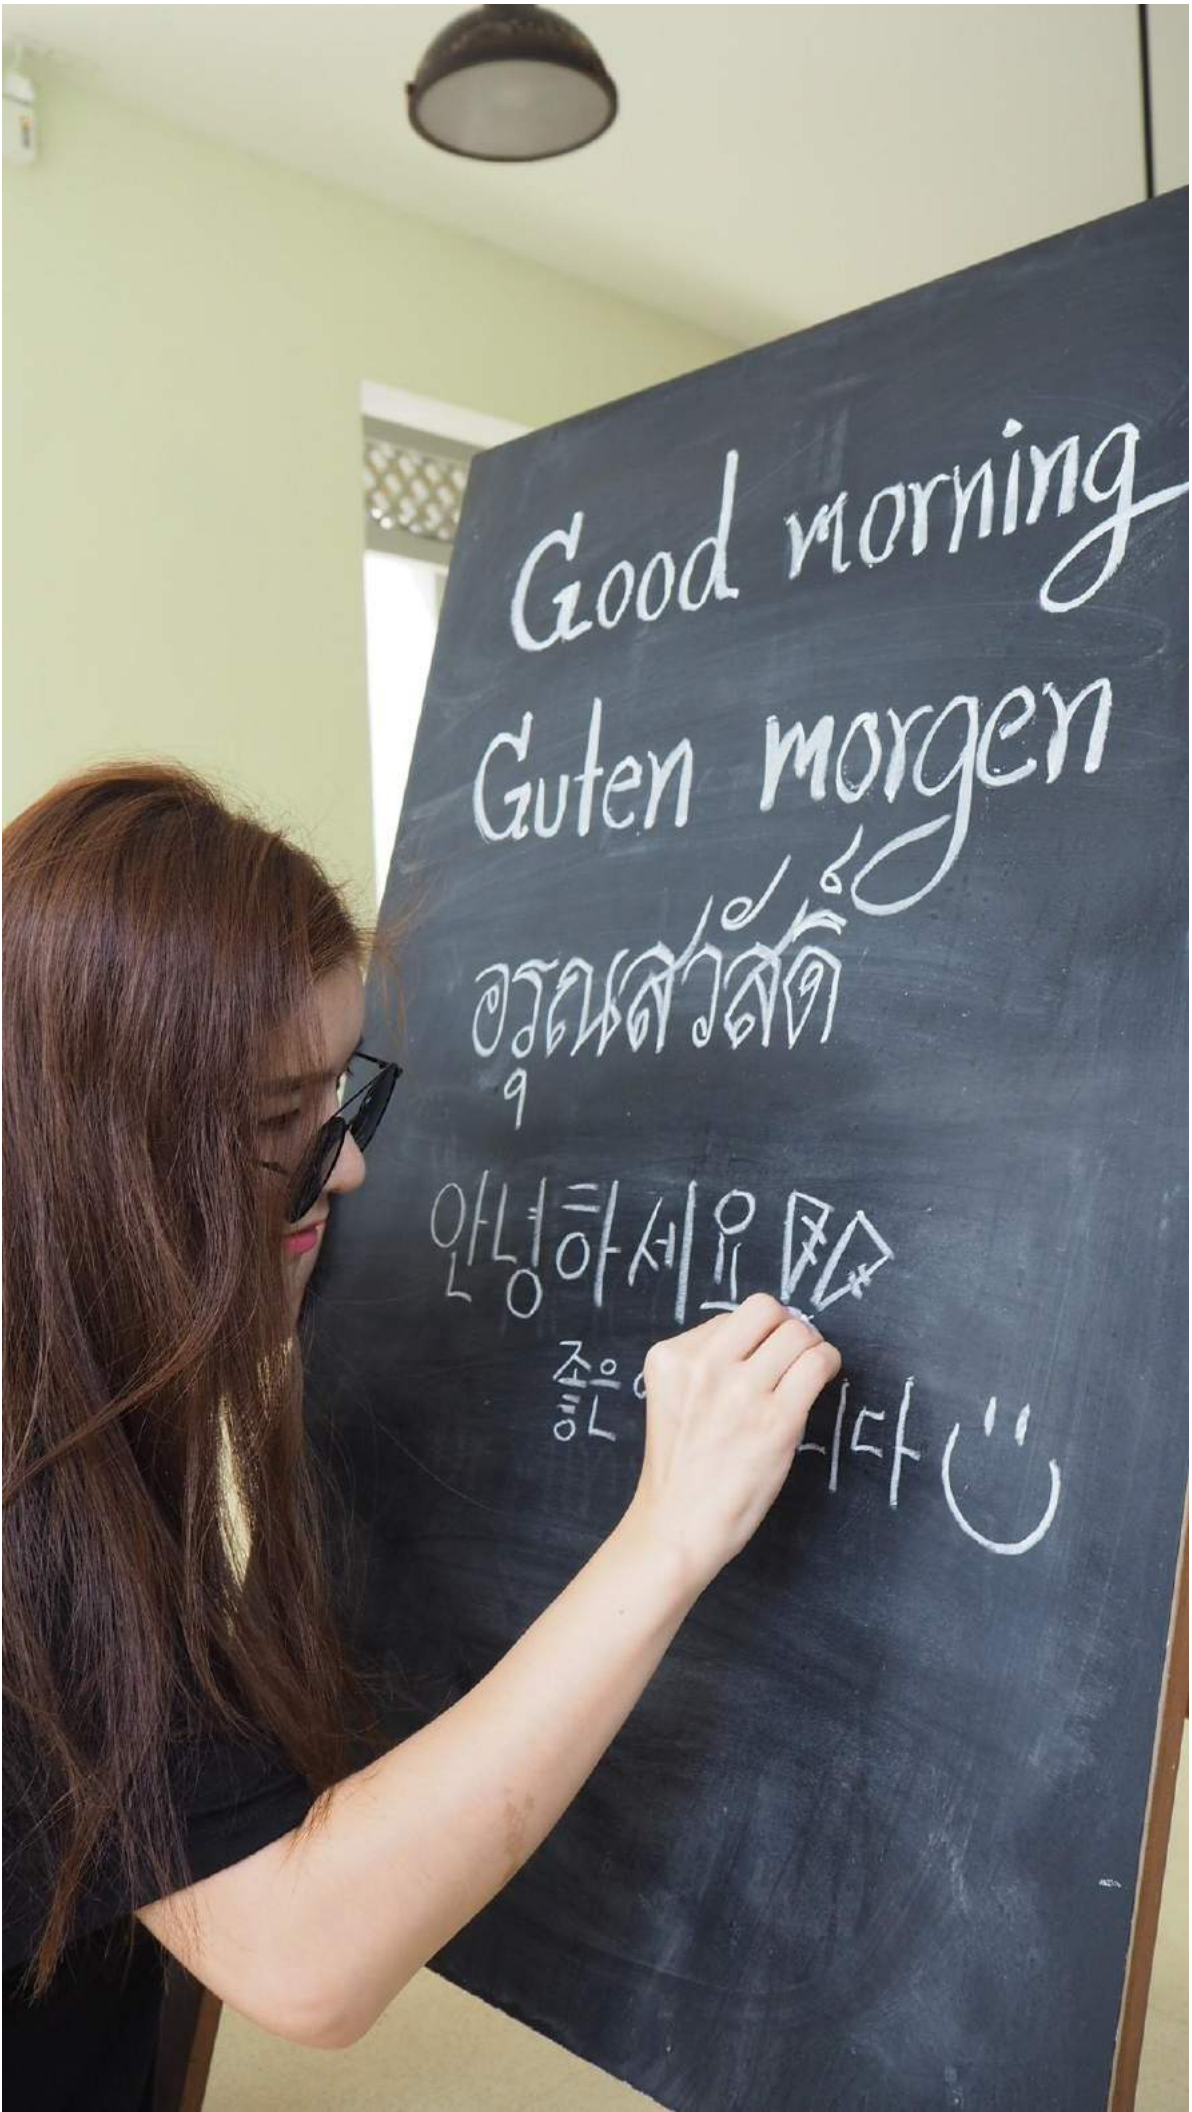 Good morning
Guten morgen
อรุณสวัสดิ์
안녕하세요
좋은